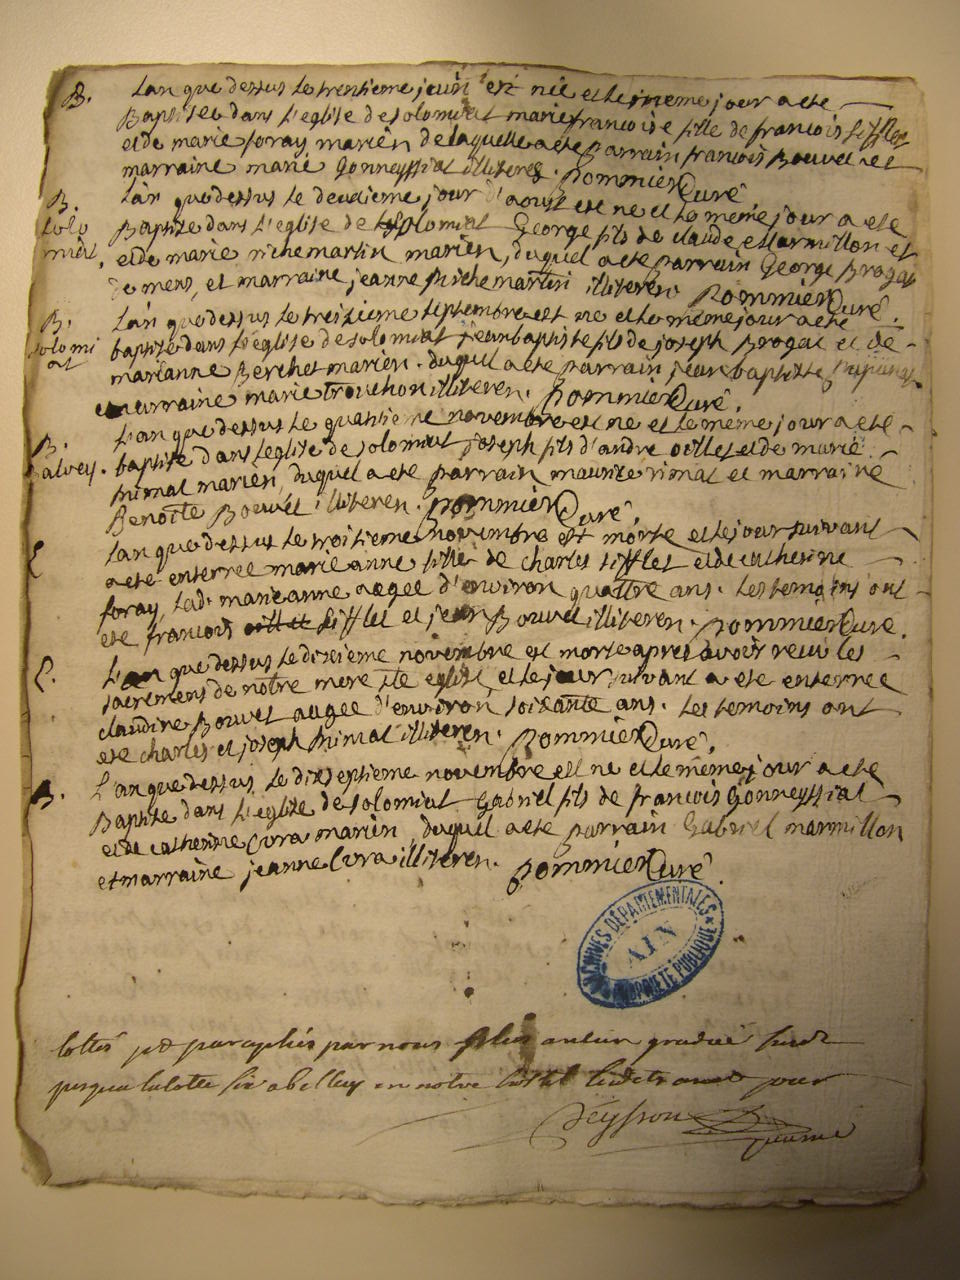 B. Lan que dessus le trentieme jeuin est née et le meme jour a ete
Baptisée dans l'eglise de solomiat marie francoise fille de francois sifflet
et de marie foray mariéz de laquelle a ete parrain francois Bouvet et
marraine marie Gonneyssiat illiteréz. Pommier Curé
B. Solomiat, Lan que dessus le deuxieme jour d'aoust est ne et le meme jour a ete
Baptize dans l'eglise de solomiat George fils de claude et
et de marie michemartin mariéz, duquel a ete parrain George Brogat
de et marraine jeanne michemartin illiteréz Pommier Curé.
B. solomiat Lan que dessus le treizieme septembre est ne et le meme jour a ete
baptize dans l'eglise de solomiat jean baptiste fils de joseph Brogat et de
marianne Berchet mariéz. duquel a ete parrain jean baptiste
et marraine marie trouchon illiteréz. Pommier Curé.
B. Lan que dessus le novembre est ne et le meme jour a ete
baptize dans l'eglise de solomiat joseph fils d'andre oillet et de marie
mariéz, duquel a ete parrain maurice et marraine
Benoite Bouvet illiteréz. Pommier Curé.
E Lan que dessus le troisieme novembre est morte et le jour suivant
a ete enterree marie anne fille de charles sifflet et de catherine
foray, lad. marie anne aagee d'environ quattre ans. Les temoins ont
ete francois sifflet et jean Bouvet illiteréz. Pommier Cure.
E. L'an que dessus le dixieme novembre est morte apres avoir receu les
sacremens de notre mere ste eglise, et le jour suivant a ete enterree
claudine Bouvet aagee d'environ soixante ans. Les temoins ont
ete charles et joseph illiteréz. Pommier Curé.
B. L'an que dessus le dixseptieme novembre est ne et le même jour a ete
Baptize dans l'eglise de solomiat Gabriel fils de francois Gonneyssiat
et de catherine Cura mariéz, duquel a ete parrain Gabriel marmillon
et marraine jeanne Cura illiteréz. Pommier Curé
ARCHIVES DÉPARTEMENTALES
AIN
PROPRIÉTÉ PUBLIQUE
paraphés par nous plus ancien gradué
a belley en notre hostel